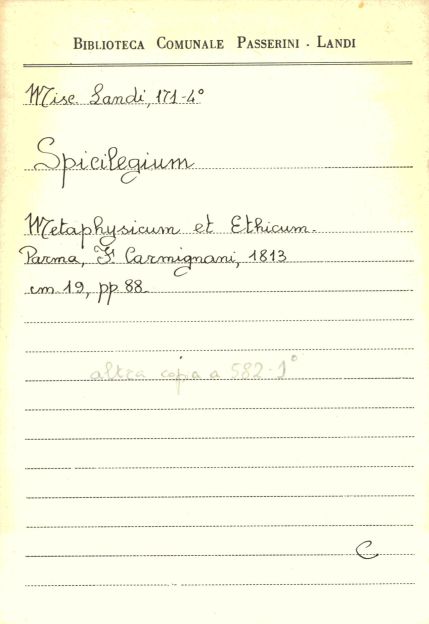 BIBLIOTECA COMUNALE PASSERINI - LANDI
Misc. Landi, 171-4°
Spicilegium
Metaphysicum et Ethicum.
Parma, F. Carmignani, 1813
cm 19, pp 88
altra copia a 582-1°
C